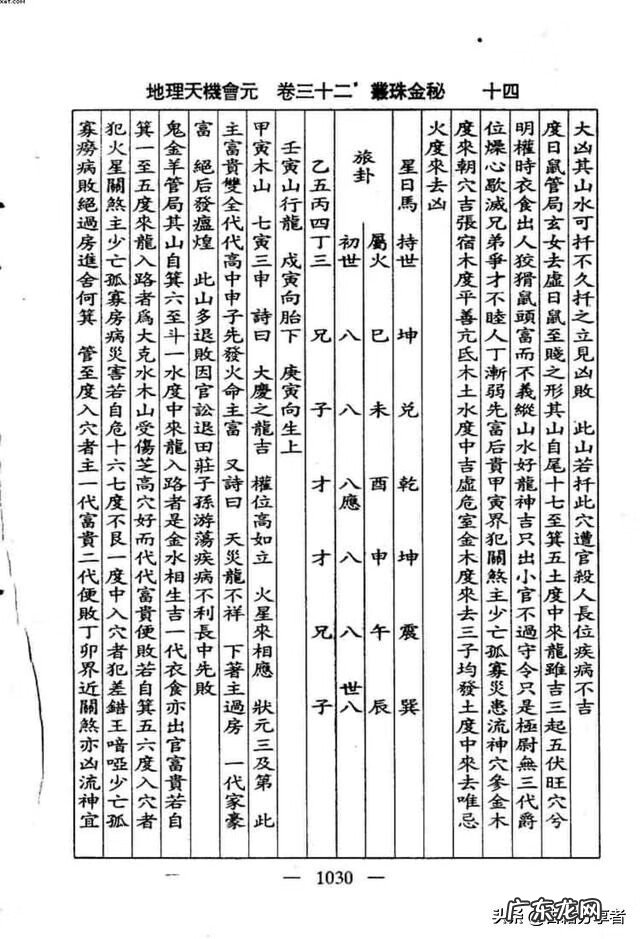 xet.com
地理天機會元 卷三十二 叢珠金秘 十四
大凶其山水可扦不久扦之立見凶敗 此山若扦此穴遭官殺人長位疾病不吉
度日鼠管局玄女去虛日鼠至賤之形其山自尾十七至箕五土度中來龍雖吉三起五伏旺穴兮
明權時衣食出人狡猾鼠頭富而不義縱山水好龍神吉只出小官不過守令只是極尉無三代爵
位燥心歇滅兄弟爭才不睦人丁漸弱先富后貴甲寅界犯關煞主少亡孤寡災患流神穴參金木
度來朝穴吉張宿木度平善亢氐木土水度中吉虛危室金木度來去三子均發土度中來去唯忌
火度來去凶
星日馬 持世 坤 兌 乾 坤 震 巽
屬火 巳 未 酉 申 午 辰
旅卦
初世 八 八 八應 八 八 世八
乙五丙四丁三 兄 子 才 才 兄 子
壬寅山行龍 戊寅向胎下 庚寅向生上
甲寅木山 七寅三申 詩曰 大慶之龍吉 權位高如立 火星來相應 狀元三及第 此
主富貴雙全代代高中申子先發火命主富 又詩曰 天災龍不祥 下著主過房 一代家豪
富 絕后發瘟煌 此山多退敗因官訟退田莊子孫游蕩疾病不利長中先敗
鬼金羊管局其山自箕六至斗一水度中來龍入路者是金水相生吉一代衣食亦出官富貴若自
箕一至五度來龍入路者爲大克水木山受傷芝高穴好而代代富貴便敗若自箕五六度入穴者
犯火星關煞主少亡孤寡房病災害若自危十六七度不艮一度中入穴者犯差錯王喑啞少亡孤
寡癆病敗絕過房進舍何箕 管至度入穴者主一代富貴二代便敗丁卯界近關煞亦凶流神宜
— 1030 —
头条
广东龙网
享者